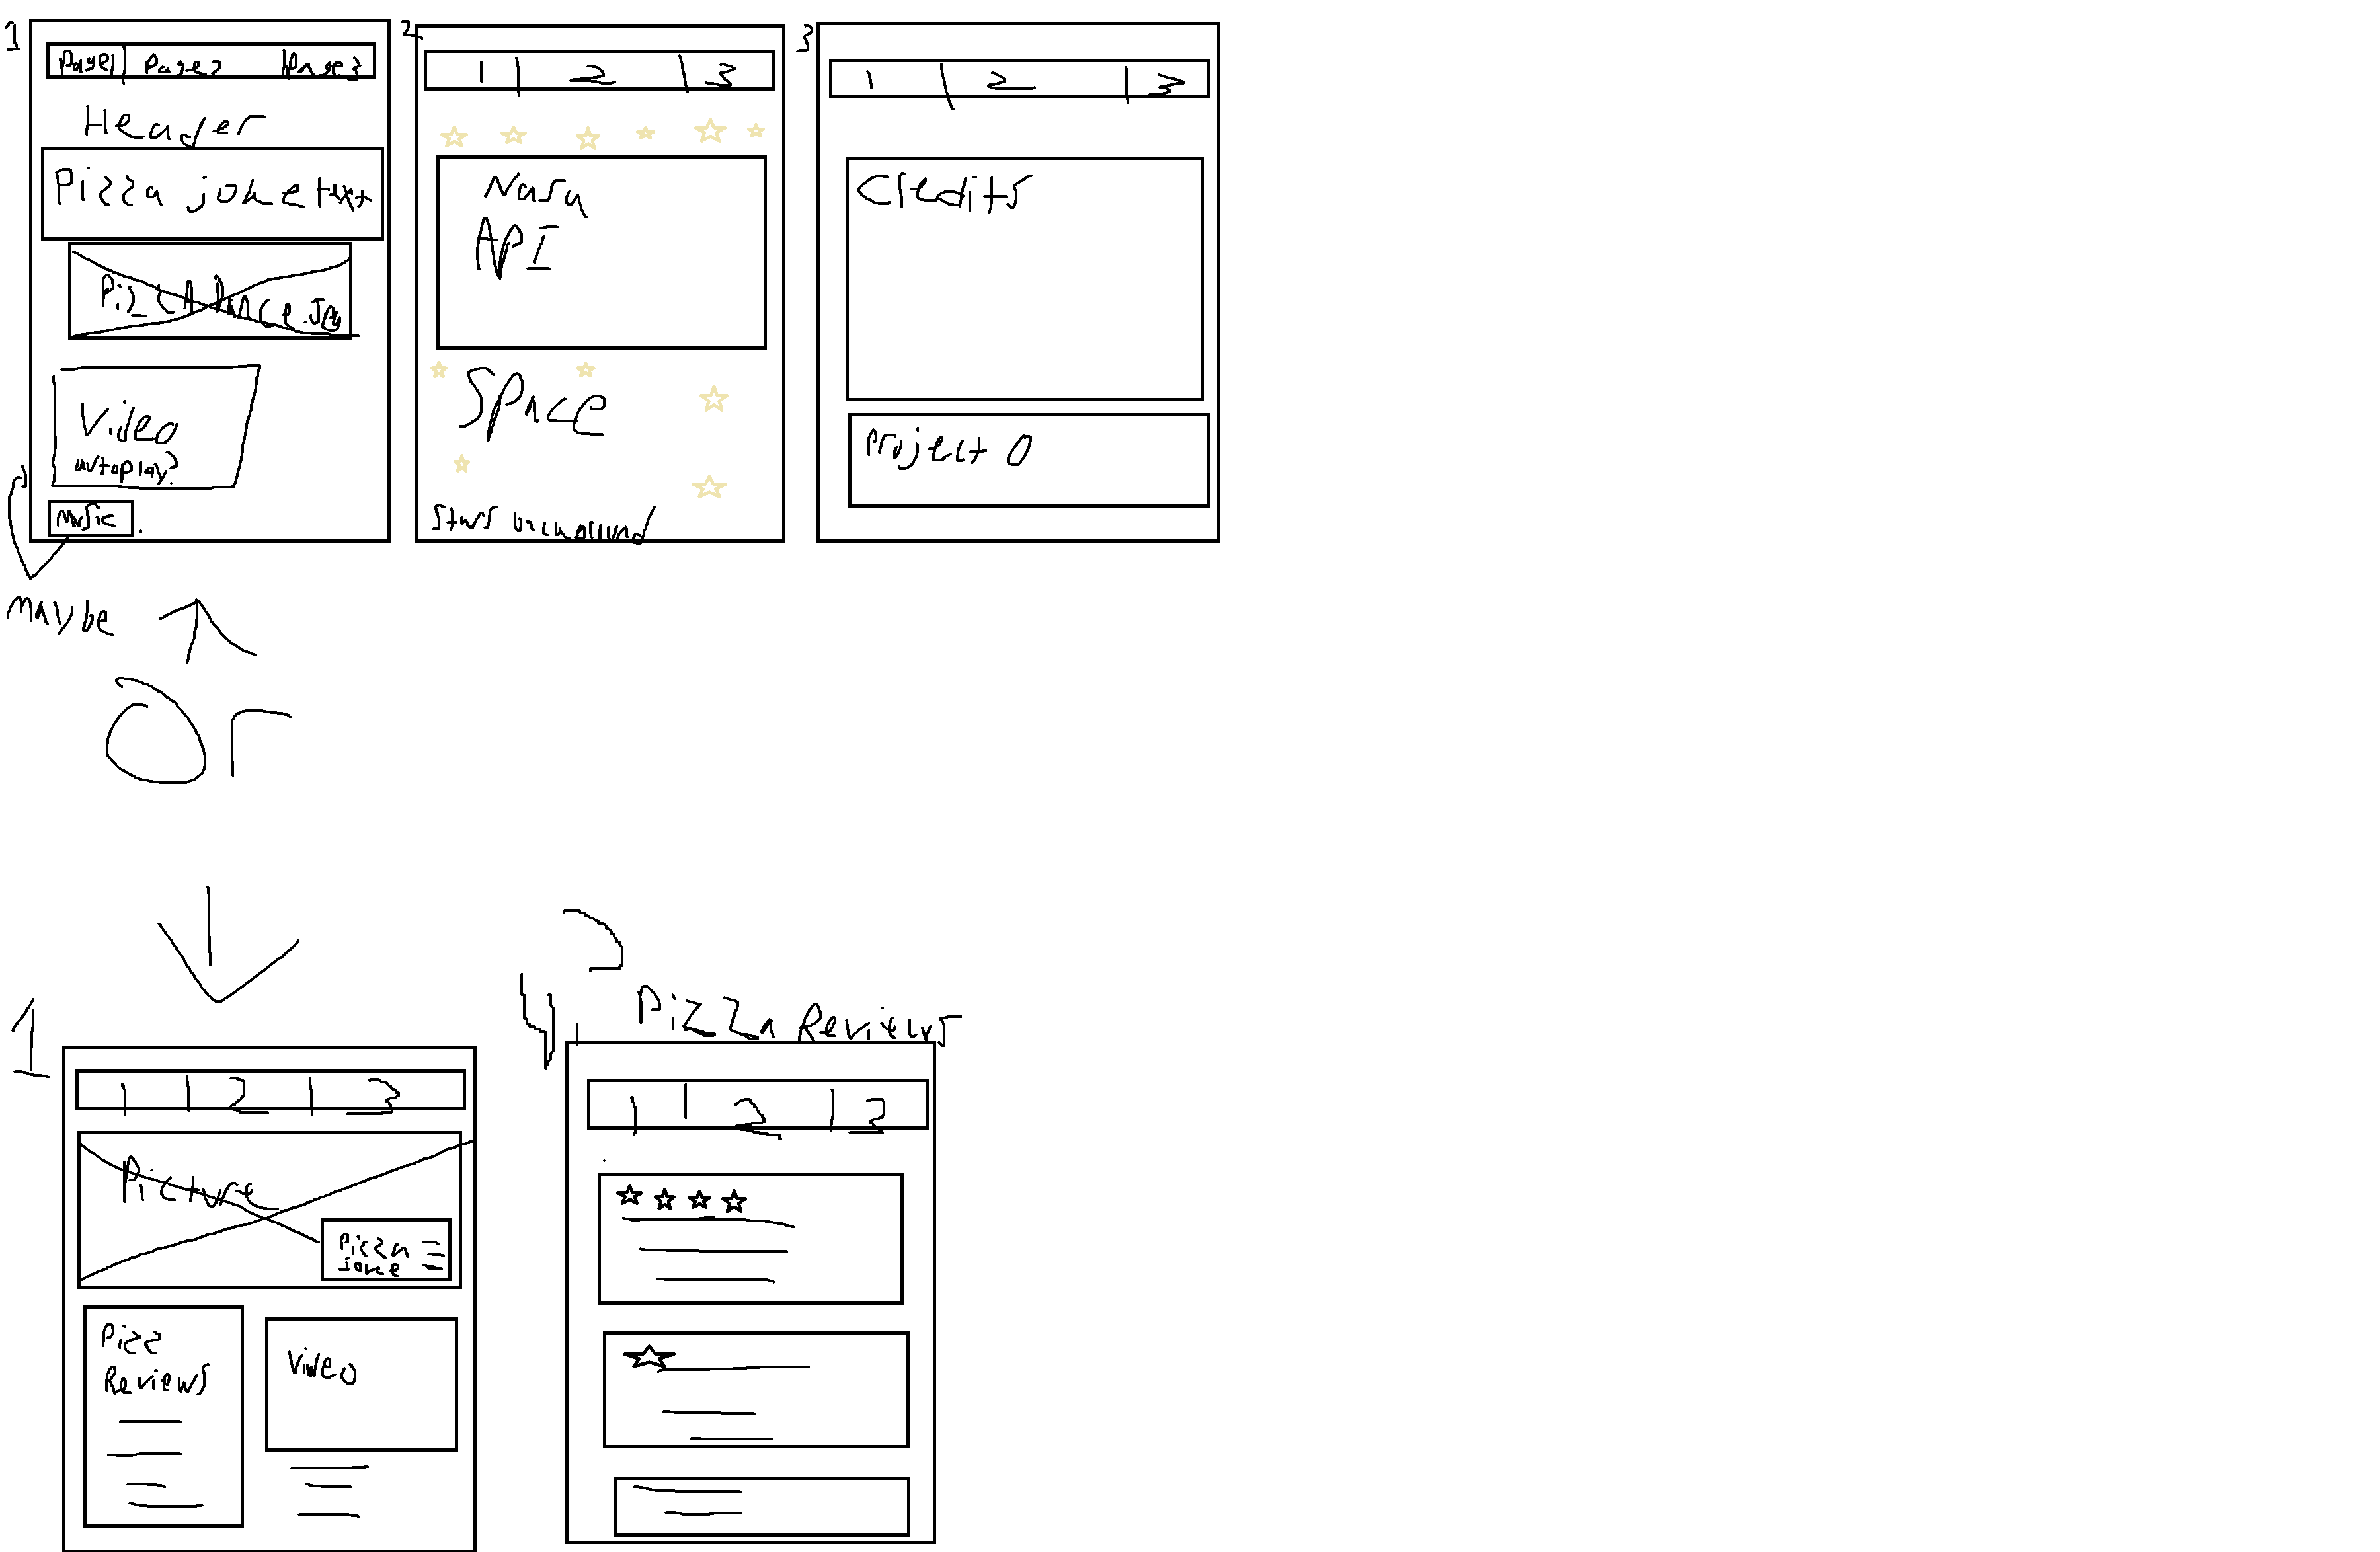 1
Page1 | Page2 | Page3
Header
Pizza joke text
Pizza Dance.jpg
Video
autoplay?
Music
Maybe
2
1 | 2 | 3
Nasa
API
Space
Stars background
3
1 | 2 | 3
Credits
Project 0
Or
1
1 | 2 | 3
Picture
Pizza
joke
Pizz
Reviews
Video
Pizza Reviews
1 | 2 | 3